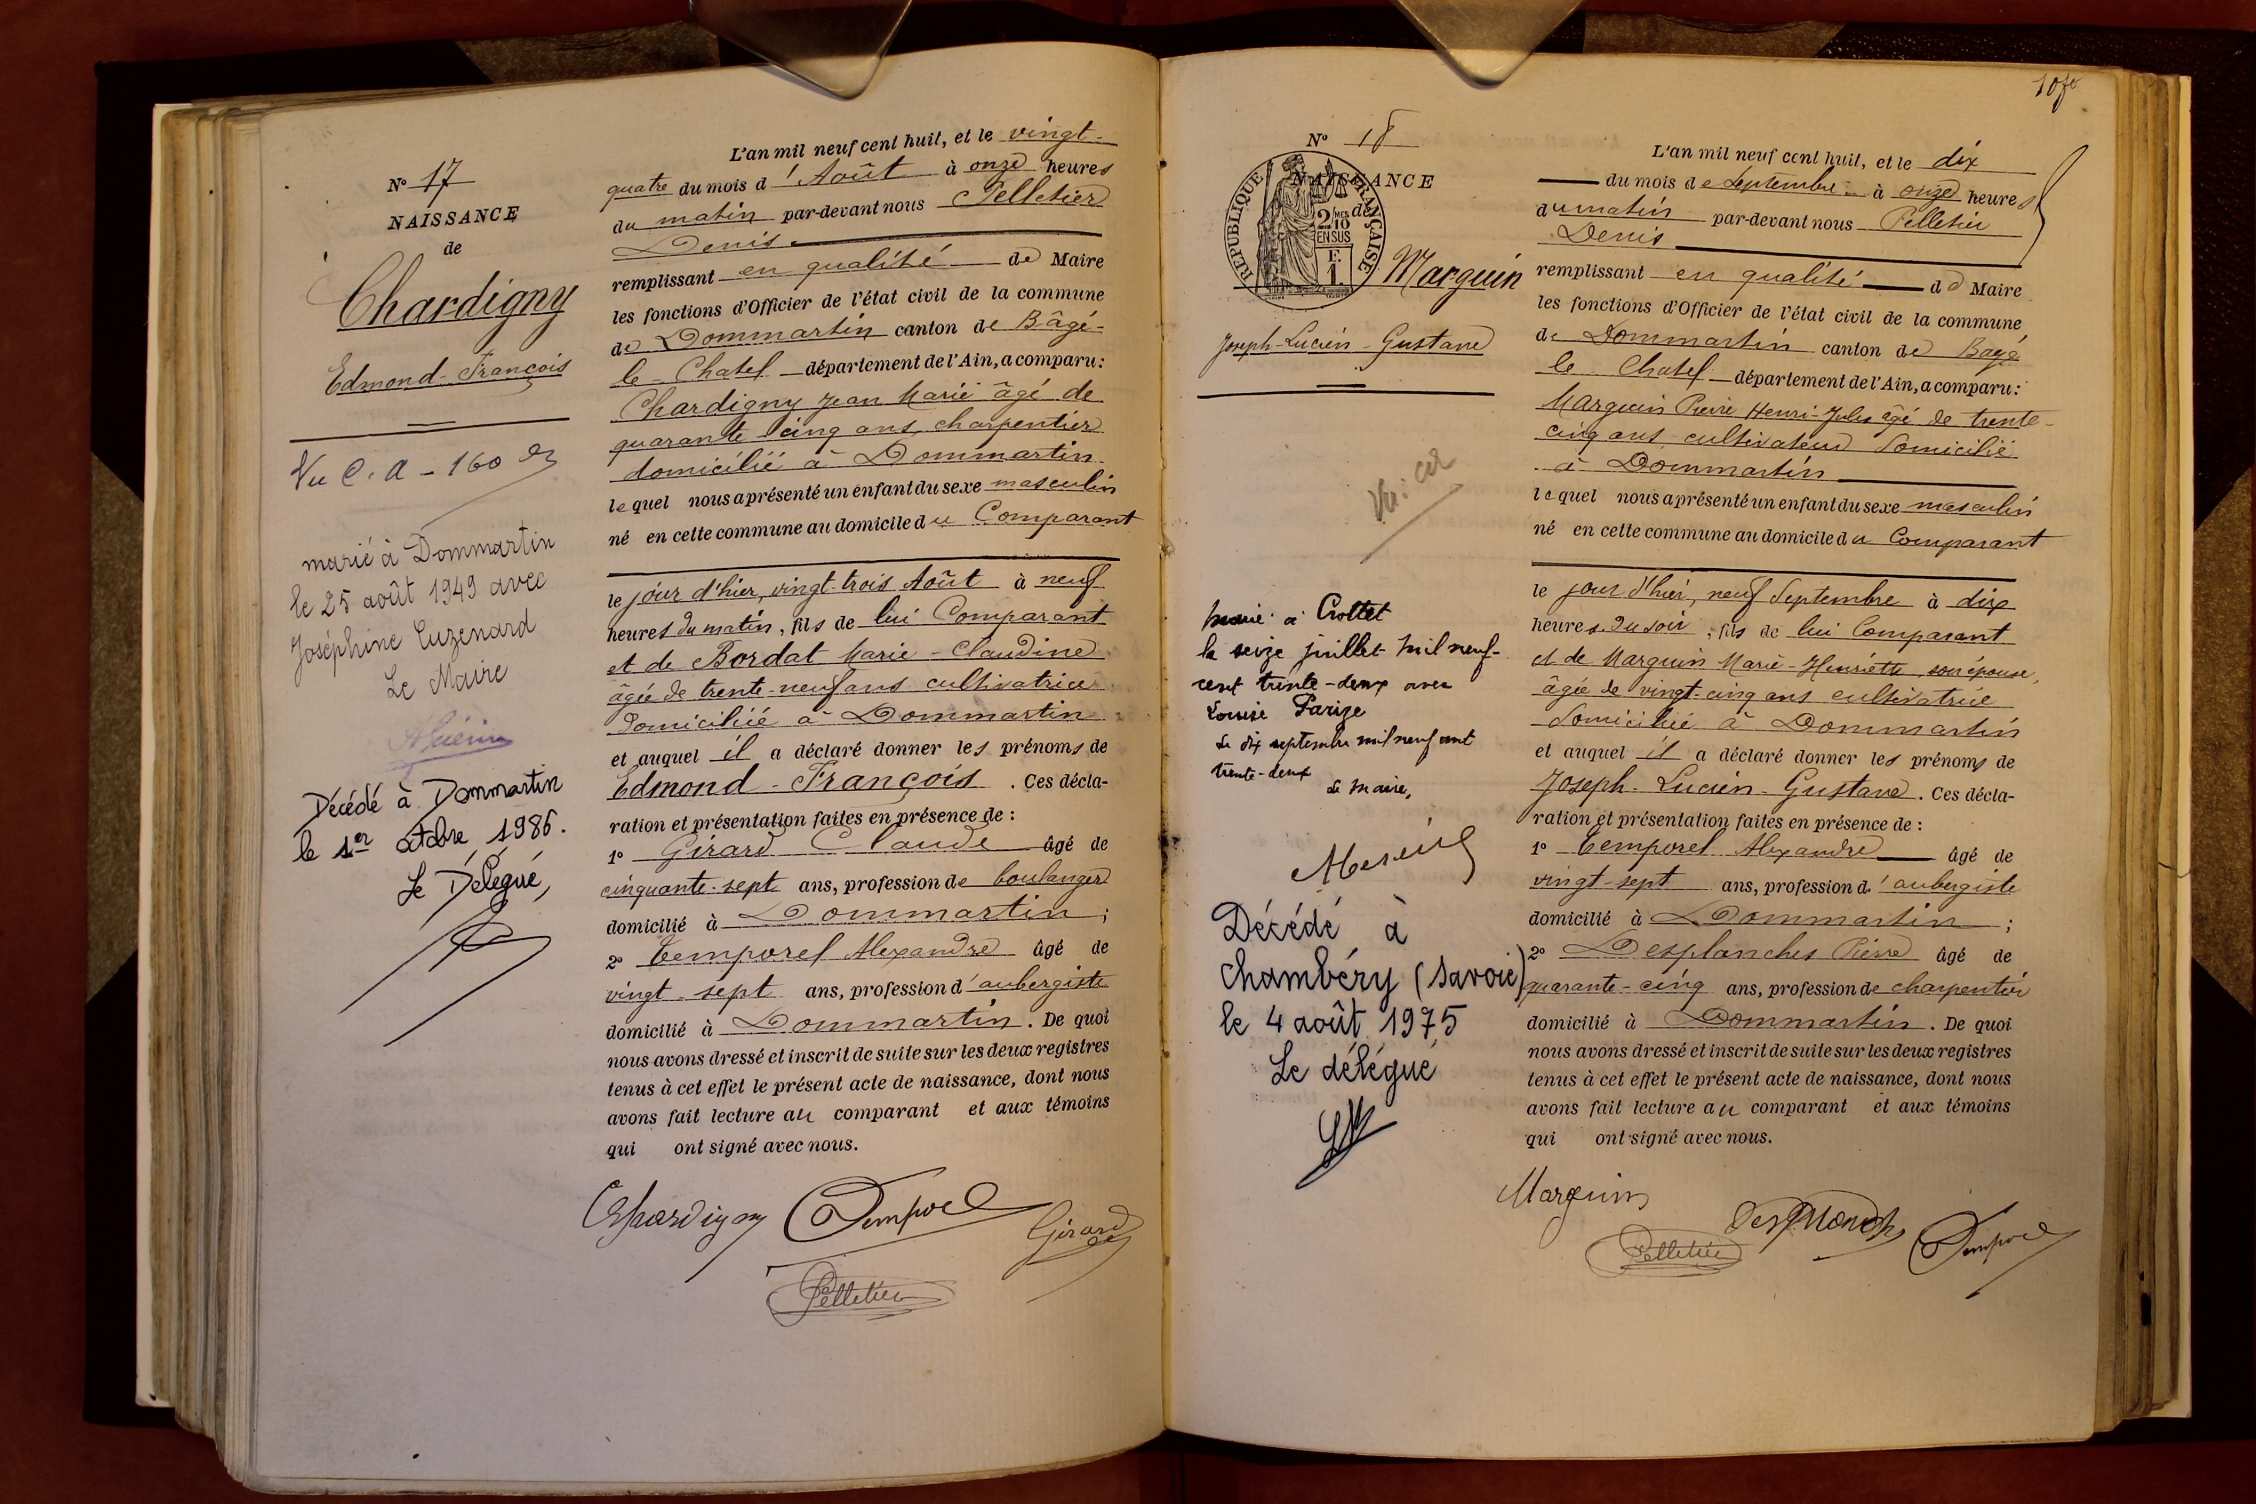 N° 17
NAISSANCE
de
Chardigny
Edmond-François
Vu C. A - 160
marié à Dommartin
le 25 août 1949 avec
Joséphine Cuzenard
Le Maire
Décédé à Dommartin
le 1er octobre 1986.
Le Délégué,
L'an mil neuf cent huit, et le vingt-
quatre du mois d'Août à onze heures
du matin par-devant nous Pelletier
Denis
remplissant en qualité de Maire
les fonctions d'Officier de l'état civil de la commune
de Dommartin canton de Bâgé-
le-Chatel département de l'Ain, a comparu:
Chardigny Jean Marie âgé de
quarante cinq ans, charpentier
domicilié à Dommartin
lequel nous a présenté un enfant du sexe masculin
né en cette commune au domicile du Comparant
le jour d'hier, vingt-trois Août à neuf
heures du matin, fils de lui Comparant
et de Bordat Marie-Claudine
âgée de trente-neuf ans cultivatrice
domiciliée à Dommartin
et auquel il a déclaré donner les prénoms de
Edmond-François. Ces décla-
ration et présentation faites en présence de:
1° Girard Claude âgé de
cinquante-sept ans, profession de boulanger
domicilié à Dommartin;
2° Temporel Alexandre âgé de
vingt-sept ans, profession d'aubergiste
domicilié à Dommartin. De quoi
nous avons dressé et inscrit de suite sur les deux registres
tenus à cet effet le présent acte de naissance, dont nous
avons fait lecture au comparant et aux témoins
qui ont signé avec nous.
Chardigny Temporel Girard
Pelletier
N° 18
NAISSANCE
de
RÉPUBLIQUE FRANÇAISE
2/10 MES
EN SUS
F.
1.
Marguin
Joseph-Lucien-Gustave
Vu:
Marié à Crottet
le seize juillet mil neuf-
cent trente-deux avec
Louise Parize
Le dix septembre mil neuf cent
trente-deux
Le Maire,
Décédé à
Chambéry (Savoie)
le 4 août 1975
Le délégué
L'an mil neuf cent huit, et le dix
du mois de Septembre à onze heures
du matin par-devant nous Pelletier
Denis
remplissant en qualité de Maire
les fonctions d'Officier de l'état civil de la commune
de Dommartin canton de Bagé
le Chatel département de l'Ain, a comparu:
Marguin Pierre Henri-Jules âgé de trente-
cinq ans cultivateur domicilié
à Dommartin
lequel nous a présenté un enfant du sexe masculin
né en cette commune au domicile du Comparant
le jour d'hier, neuf Septembre à dix
heures du soir, fils de lui Comparant
et de Marguin Marie-Henriette son épouse,
âgée de vingt-cinq ans cultivatrice
domiciliée à Dommartin
et auquel il a déclaré donner les prénoms de
Joseph-Lucien-Gustave. Ces décla-
ration et présentation faites en présence de:
1° Temporel Alexandre âgé de
vingt-sept ans, profession d'aubergiste
domicilié à Dommartin;
2° Desplanches Pierre âgé de
quarante-cinq ans, profession de charpentier
domicilié à Dommartin. De quoi
nous avons dressé et inscrit de suite sur les deux registres
tenus à cet effet le présent acte de naissance, dont nous
avons fait lecture au comparant et aux témoins
qui ont signé avec nous.
Marguin
Pelletier Desplanch Temporel